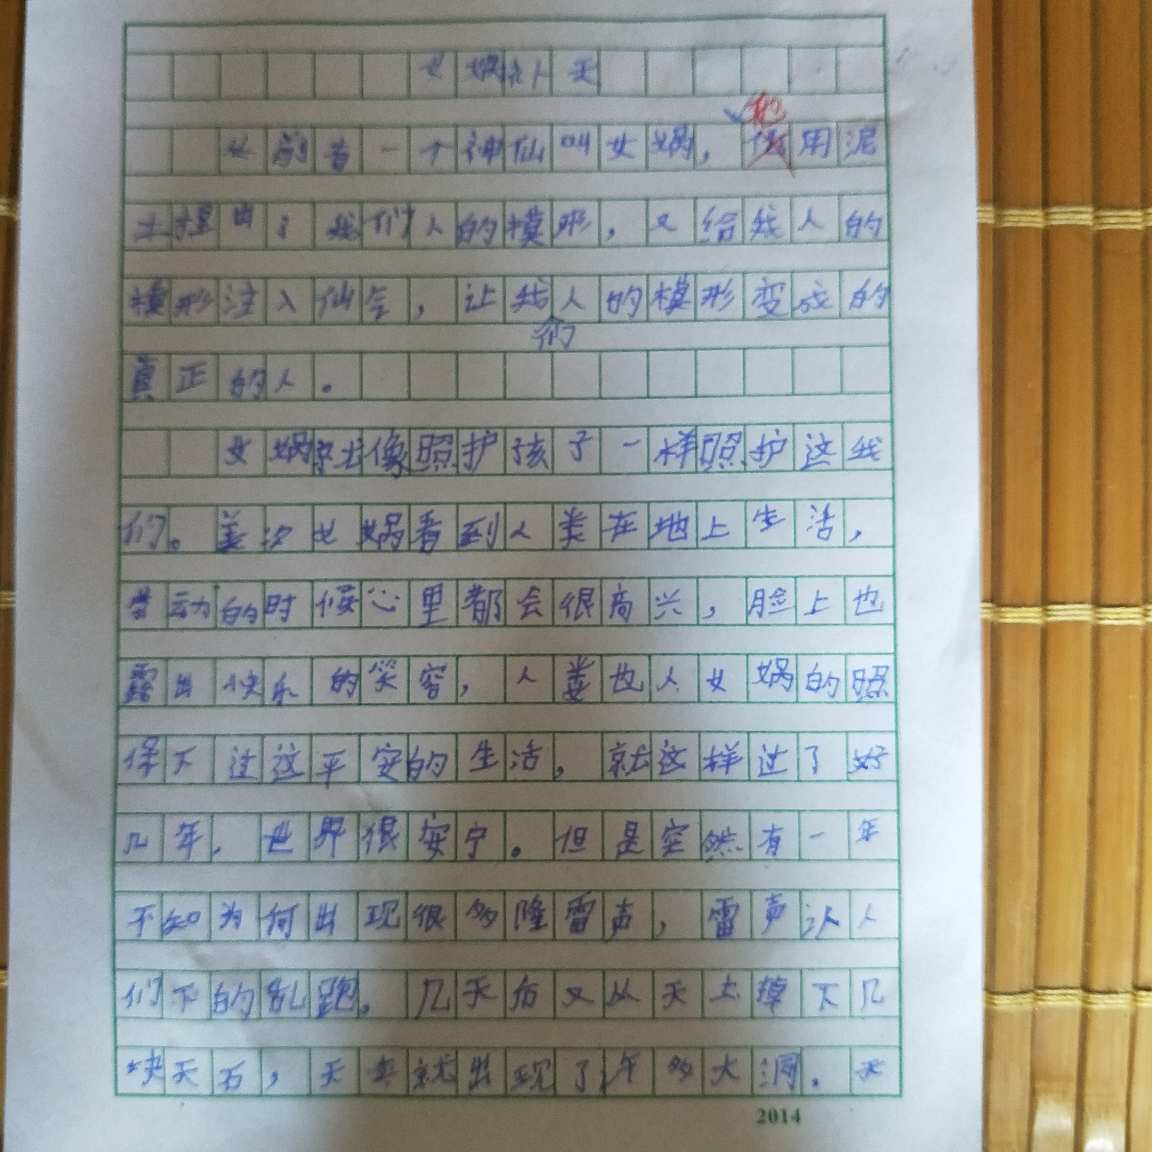 女娲补天
从前有一个神仙叫女娲，他用泥
土捏出了我们人的模形，又给我人的
模形注入仙气，让我人的模形变成的
们
真正的人。
女娲就像照护孩子一样照护这我
们。女娲看到人类在地上生活，
劳动的时候心里都会很高兴，脸上也
露出快乐的笑容，人类也人女娲的照
保下过这平安的生活，就这样过了好
几年，世界很安宁。但是突然有一年
不知为何出现很多隆雷声，雷声让人
们下的乱跑。几天后又从天上掉下几
块天石，天就出现了许多大洞。天
2014